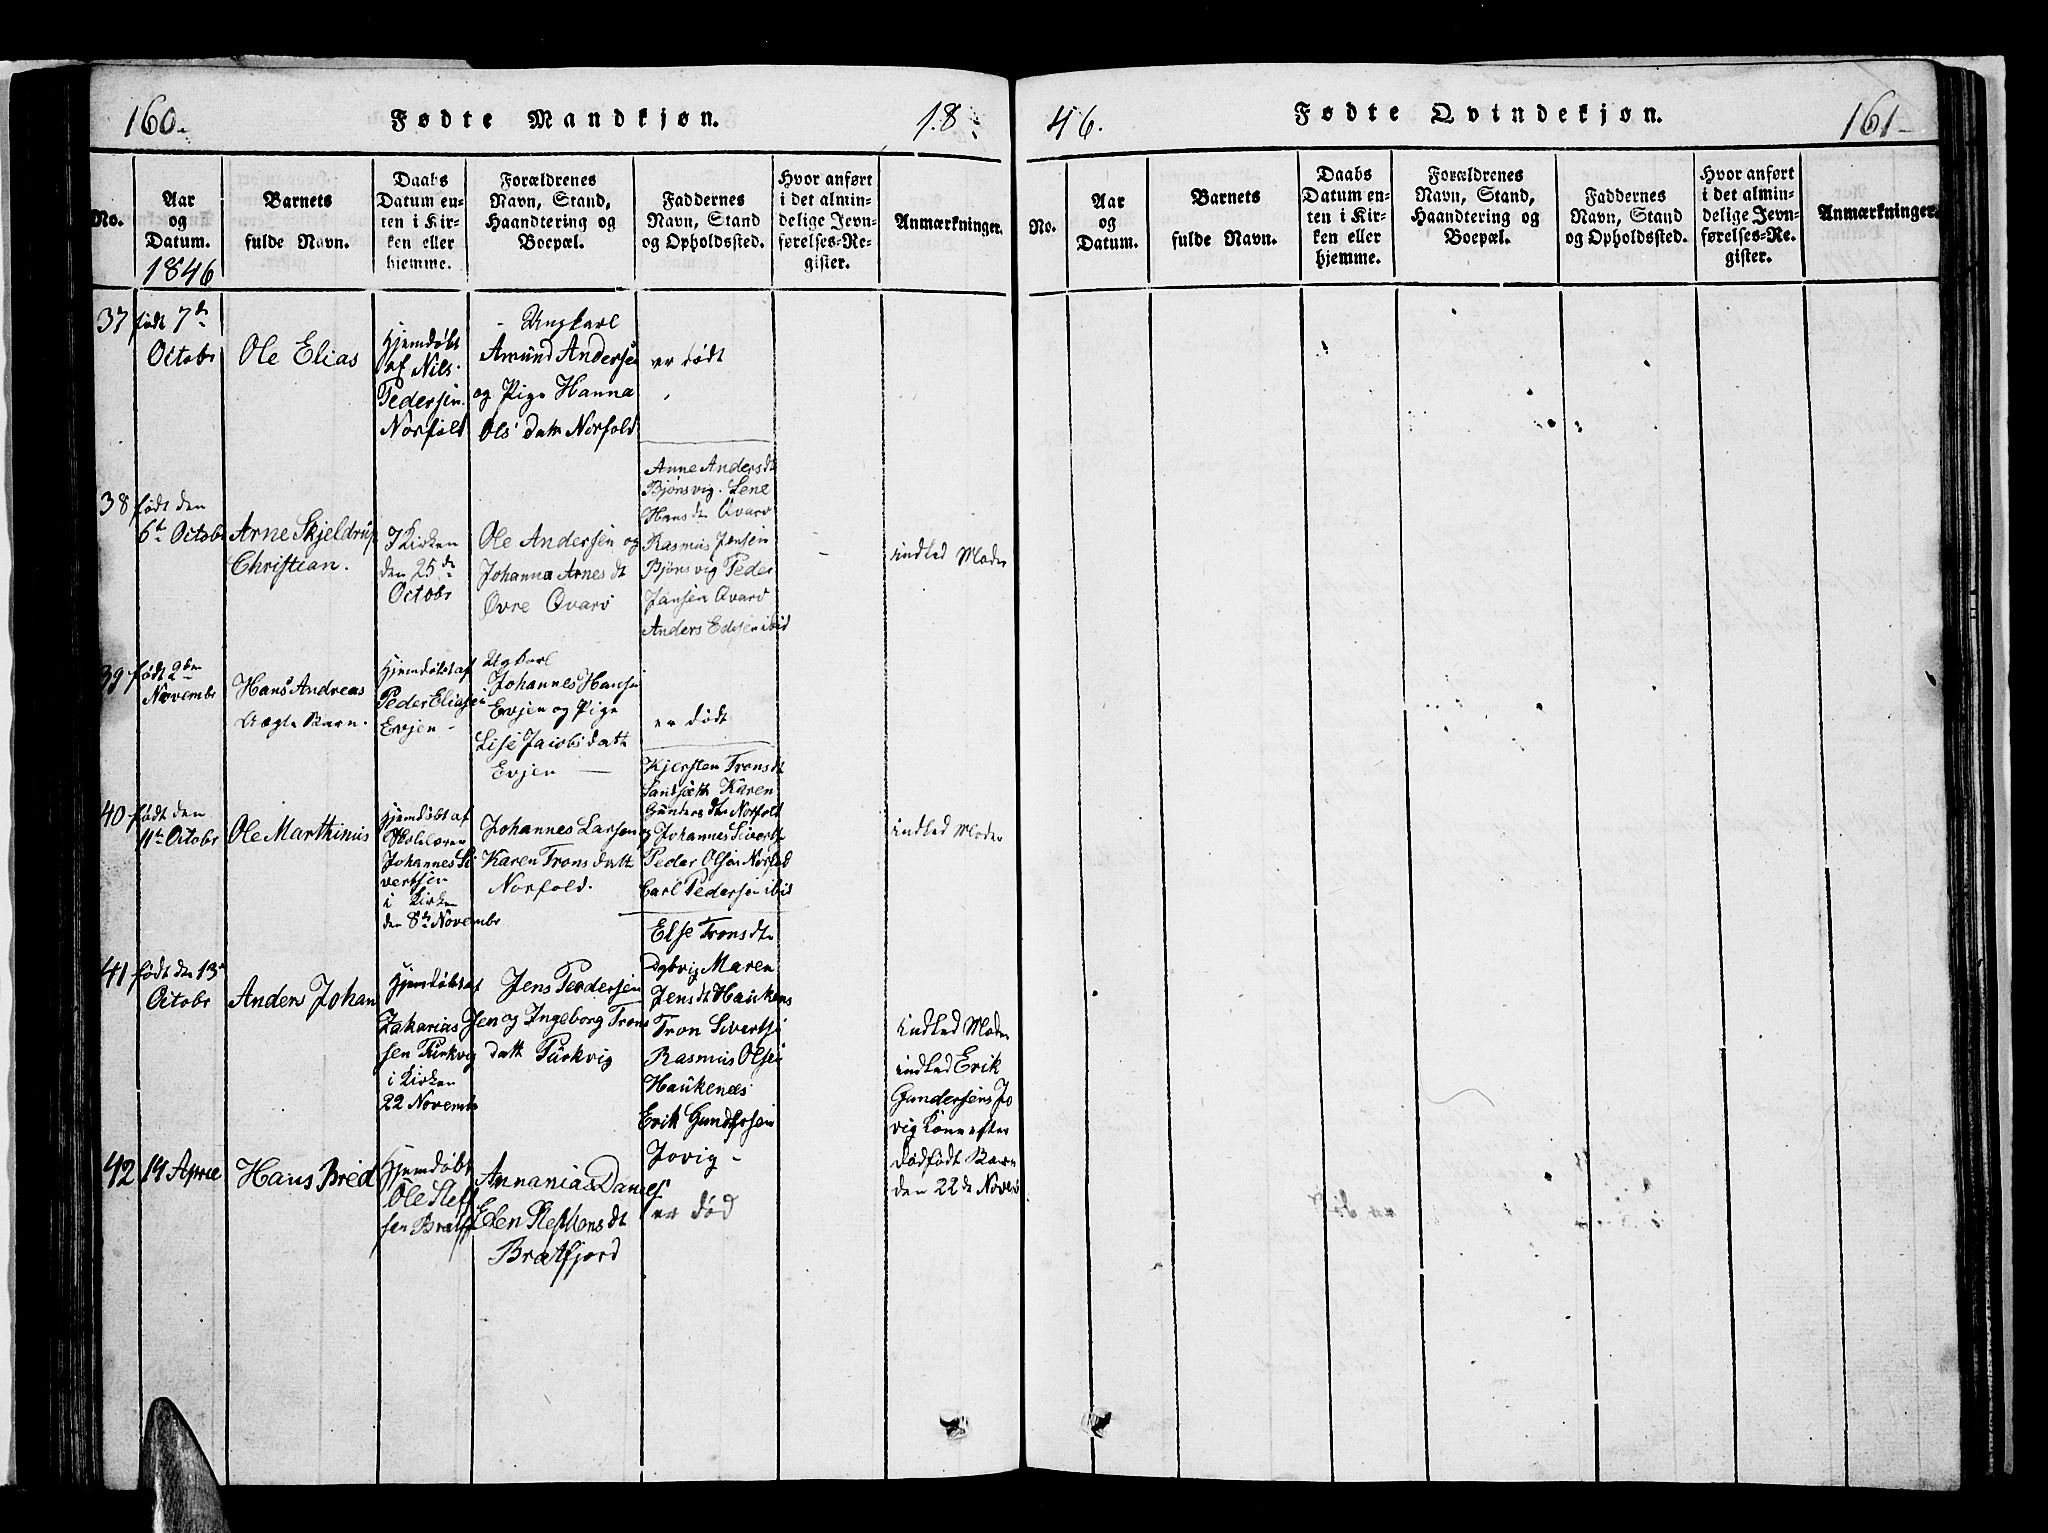 160.
Fødte Mandkjøn.
18
No.
Aar og Datum.
1846
Barnets fulde Navn.
Daabs Datum enten i Kirken eller hjemme.
Forældrenes Navn, Stand, Haandtering og Boepæl.
Faddernes Navn, Stand og Opholdssted.
Hvor anført i det almindelige Jevnførelses-Register.
Anmærkninger.
37
født 7de
Octobr
Ole Elias
Hjemdøbt
af Nils
Pedersen
Norfold
Ungkarl
Amund Andersen
og Pige Hanna
Ols datr Norfold
er dødt
38
født den
6te Octobr
Arne Skjeldrup
Christian.
I Kirken
den 25de
Octobr
Ole Andersen og
Johanna Arnes dt
Øvre Qvarv
Anne Anders dt
Bjønsvig. Lene
Hans dt Qvarv
Rasmus Jensen
Bjønsvig Peder
Jansen Qvarv
Anders Edisen ibid
indled Moder
39
født 2den
Novembr
Hans Andreas
Uægte Barn.
Hjemdøbt af
Peder Eliasen
Evjen
Ugkarl
Johannes Hansen
Evjen og Pige
Lise Jacobs datt
Evjen
er dødt
40
født den
11te Octobr
Ole Marthinus
Hjemdøbt af
Skolelæren
Johannes Si
vertsen
i Kirken
den 8de Novembr
Johannes Larsen og
Karen Trons datt
Norfold.
Kjersten Trons dt
Sandsætr Karen
Gunders dtr Norfold
Johannes Sivertsen
Peder Olsen Norfold
Carl Pedersen ibid
indled Moder
41
født den 13de
Octobr
Anders Johan
Hjemdøbt af
Zakarias Jen
sen Purkvig
i Kirken
22 Novembr
Jens Pedersen
og Ingeborg Trons
datt Purkvig
Else Trons dtr
Dybvig Maren
Jens dt Haukenes
Tron Sivertsen
Rasmus Olsen
Haukenees
Erik Gundersen
Jovig
indled Moder
indled Erik
Gundersens Jo
vig Kone efter
dødfødt Barn
den 22de Novbr
42
14 April
Hans Bred
Hjemdøbt
Ole Steff
sen Bratf
Annanias Daniels
Elen Steffens dt
Brætfjord
er død
46.
Fødte Qvindekjøn.
161
No.
Aar og Datum.
Barnets fulde Navn.
Daabs Datum enten i Kirken eller hjemme.
Forældrenes Navn, Stand, Haandtering og Boepæl.
Faddernes Navn, Stand og Opholdssted.
Hvor anført i det almindelige Jevnførelses-Register.
Anmærkninger.